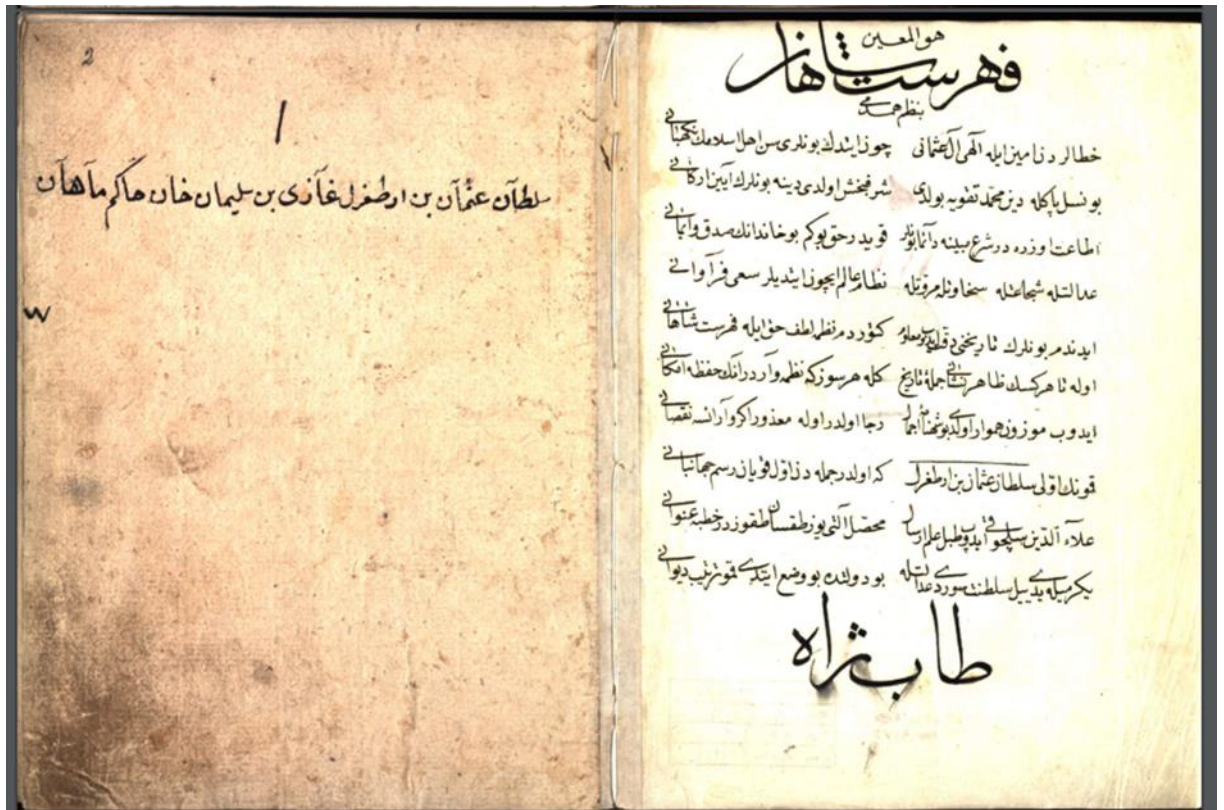 2
١
سلطآن عثمآن بن ارطغرل غآزى بن سليمان خان حاكم مآهآن
هو المعين
فهرست شاهان
بنظم حمدمى
خطالردن امين ايله آلهى آل عثمانى چون ايتدك بونلرى سن اهل اسلامك نكهبانى
بو نسل پاكله دين محمد تقويه بولدى شرفبخش اولدى دينه بونلرك آيين اركانى
اطاعت اوزره در شرع مبينه دآئما بونلر قويدر حق بو كم بو خاندانك صدق وايمانى
عدالتله شجاعتله سخاوتله مروتله نظام عالم ايچون ايتديلر سعى فرآوانى
ايدندم بونلرك تاريخنى كتوردم نظمه لطف حق ايله فهرست شاهانى
اوله تا هر كسك ظاهر نشانى جمله تاريخ كله هر سوز كه نظمه وآردر آنك حفظه امكانى
ايدوب موزون هموار اولدى بو شهنامه اجمال رجا اولدر اوله معذور اكر وآر ايسه نقصانى
قمونك اولى سلطان عثمان بن ارطغرل كه اولدر جمله دن اول قويان رسم جهانبانى
علآء آلدين سلجوقى ايدوب طبل علم ارسال محصل آلتى يوز طقسان طقوزدر خطبه عنوانى
يكرمى يدى ييل سلطنت سوردى عدالتله بو دولتده بو وضع ايتدى قمو ترتيب ديوانى
طاب ثراه